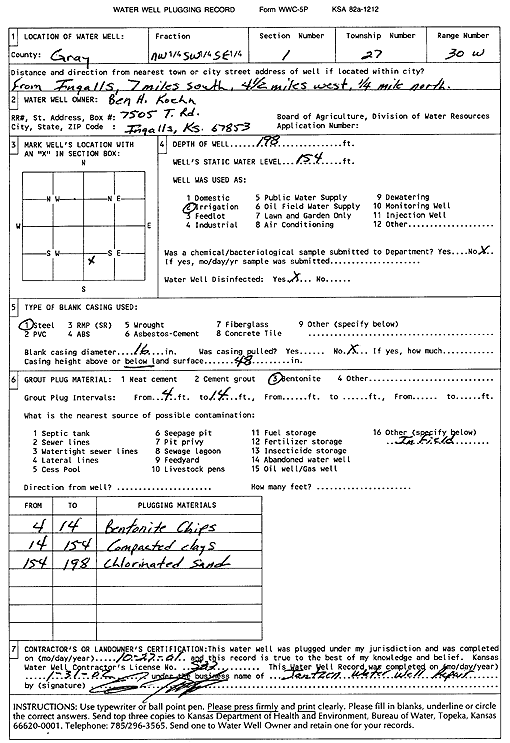 WATER WELL PLUGGING RECORD Form WWC-5P KSA 82a-1212
1 LOCATION OF WATER WELL: Fraction Section Number Township Number Range Number
County: Gray NW 1/4 SW 1/4 SE 1/4 1 27 30 W
Distance and direction from nearest town or city street address of well if located within city?
From Ingalls, 7 miles south, 4 1/2 miles west, 1/4 mile north.
2 WATER WELL OWNER: Ben H. Koehn
RR#, St. Address, Box #: 7505 T. Rd. Board of Agriculture, Division of Water Resources
City, State, ZIP Code : Ingalls, Ks. 67853 Application Number:
3 MARK WELL'S LOCATION WITH AN "X" IN SECTION BOX:
N
N W N E
W E
S W S E
X
S
4 DEPTH OF WELL....198....ft.
WELL'S STATIC WATER LEVEL....154....ft.
WELL WAS USED AS:
1 Domestic 5 Public Water Supply 9 Dewatering
2 Irrigation 6 Oil Field Water Supply 10 Monitoring Well
3 Feedlot 7 Lawn and Garden Only 11 Injection Well
4 Industrial 8 Air Conditioning 12 Other...........
Was a chemical/bacteriological sample submitted to Department? Yes....No X..
If yes, mo/day/yr sample was submitted....................
Water Well Disinfected: Yes X.. No......
5 TYPE OF BLANK CASING USED:
1 Steel 3 RMP (SR) 5 Wrought 7 Fiberglass 9 Other (specify below)
2 PVC 4 ABS 6 Asbestos-Cement 8 Concrete Tile ....................
Blank casing diameter....16....in. Was casing pulled? Yes...... No.X... If yes, how much...........
Casing height above or below land surface.....48.......in.
6 GROUT PLUG MATERIAL: 1 Neat cement 2 Cement grout 3 Bentonite 4 Other..........................
Grout Plug Intervals: From..4..ft. to 14.ft., From......ft. to .....ft., From...... to......ft.
What is the nearest source of possible contamination:
1 Septic tank 6 Seepage pit 11 Fuel storage 16 Other (specify below)
2 Sewer lines 7 Pit privy 12 Fertilizer storage ...In Field......
3 Watertight sewer lines 8 Sewage lagoon 13 Insecticide storage
4 Lateral lines 9 Feedyard 14 Abandoned water well
5 Cess Pool 10 Livestock pens 15 Oil well/Gas well
Direction from well? .................... How many feet? ....................
FROM TO PLUGGING MATERIALS
4 14 Bentonite Chips
14 154 Compacted clays
154 198 Chlorinated Sand
7 CONTRACTOR'S OR LANDOWNER'S CERTIFICATION: This water well was plugged under my jurisdiction and was completed
on (mo/day/year)....10-27-01.. and this record is true to the best of my knowledge and belief. Kansas
Water Well Contractor's License No. ...... This Water Well Record was completed on (mo/day/year)
under the business name of ... Jantzen Water Well Repair
by (signature)
INSTRUCTIONS: Use typewriter or ball point pen. Please press firmly and print clearly. Please fill in blanks, underline or circle
the correct answers. Send top three copies to Kansas Department of Health and Environment, Bureau of Water, Topeka, Kansas
66620-0001. Telephone: 785/296-3565. Send one to Water Well Owner and retain one for your records.